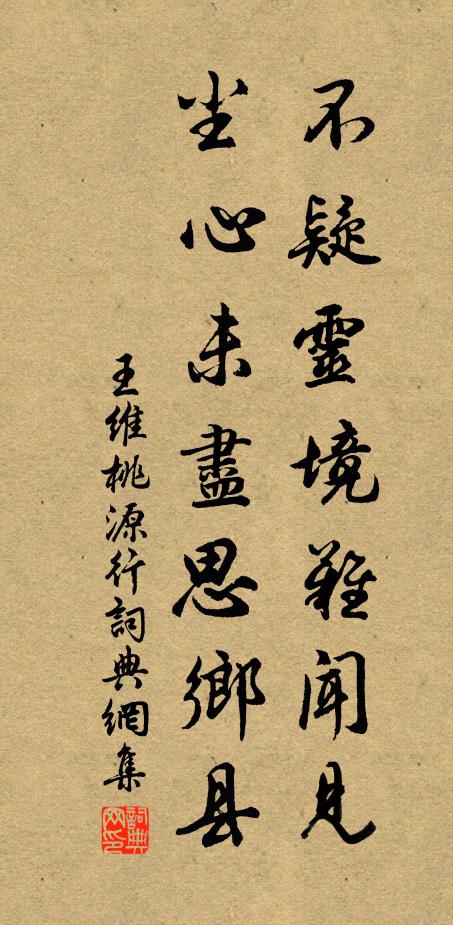 不疑靈境難聞見
尘心未盡思鄉县
王維桃源行詞典網集
詞典网印